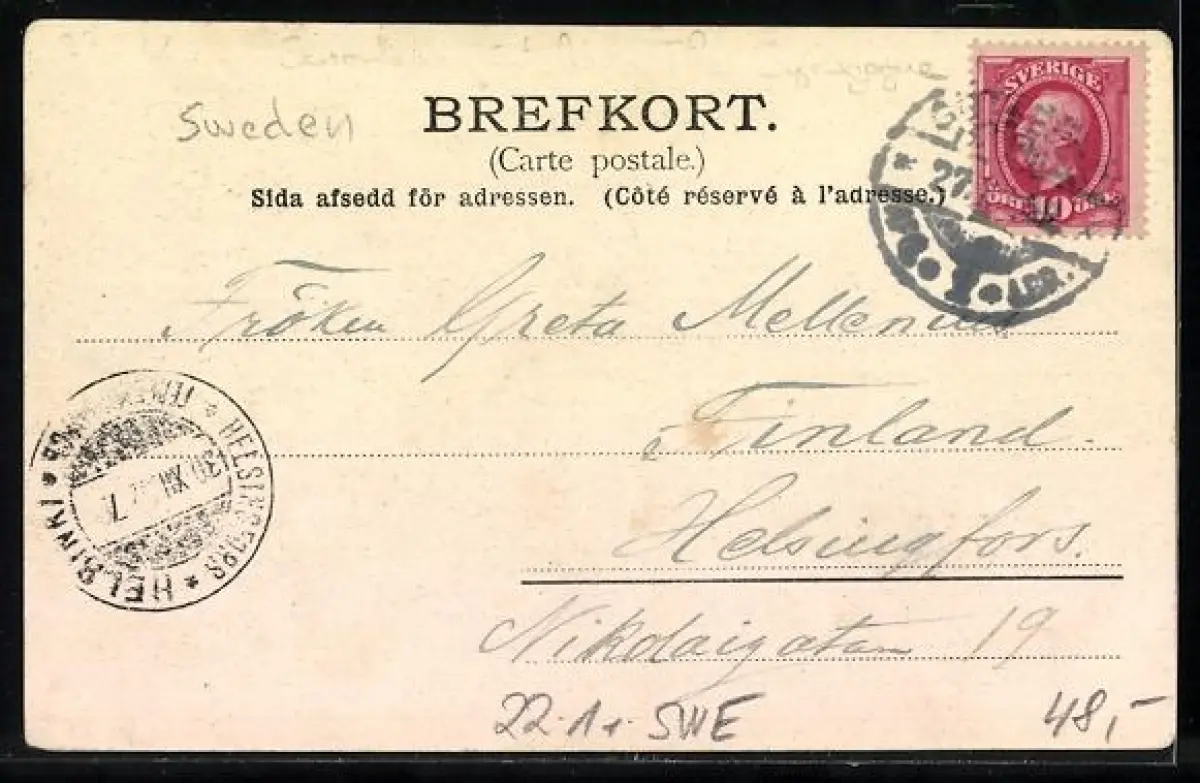 Sweden
BREFKORT.
(Carte postale.)
Sida afsedd för adressen. (Côté réservé à l'adresse.)
SVERIGE
10
27
1 APR.
Fröken Greta Mellenius
i Finland.
Helsingfors.
Nikolaigatan 19
HELSINGFORS * HELSINKI *
30 XII 7
22.1 SWE
48,-